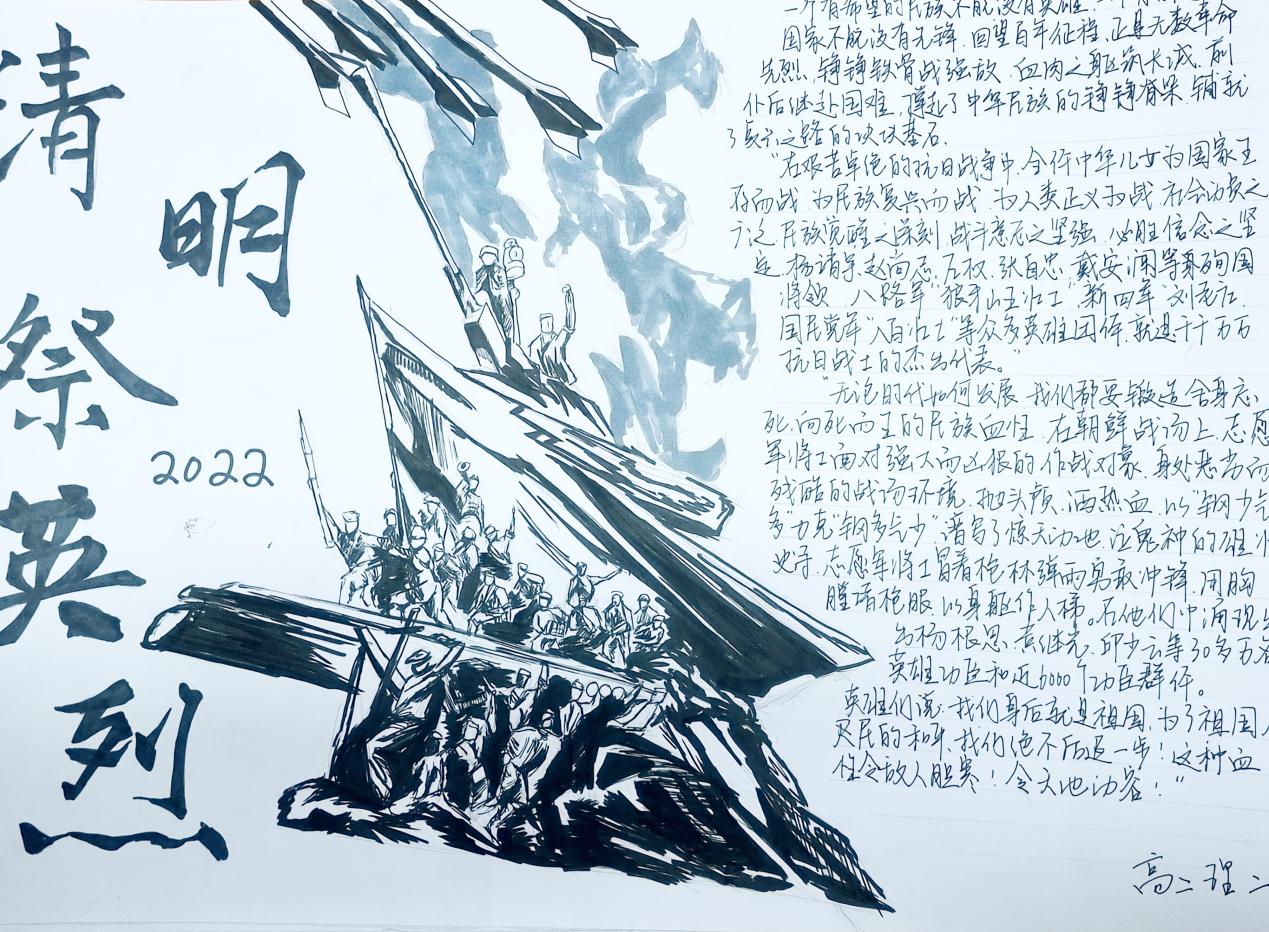 清
明
祭
英
烈
2022
一个有希望的民族不能没有英雄,一个有
国家不能没有先锋.回望百年征程,正是无数革命
先烈,铮铮铁骨战强敌、血肉之躯筑长城、前
仆后继赴国难,撑起了中华民族的铮铮脊梁,铺就
了复兴之路的块块基石.
"在艰苦卓绝的抗日战争中,全体中华儿女为国家生
存而战、为民族复兴而战、为人类正义而战,社会动员之
广泛,民族觉醒之深刻,战斗意志之坚强,必胜信念之坚
定.杨靖宇、赵尚志、左权、张自忠、戴安澜等身殉国
将领,八路军"狼牙山五壮士"新四军"刘老庄
国民党军"八百壮士"等众多英雄团体,就是千千万万
抗日战士的杰出代表。"
"无论时代如何发展,我们都要锻造舍身忘
死、向死而生的民族血性.在朝鲜战场上,志愿
军将士面对强大而凶狠的作战对象,身处恶劣而
残酷的战场环境,抛头颅、洒热血,以"钢少气
多"力克"钢多气少",谱写了惊天动地、泣鬼神的雄壮
史诗.志愿军将士冒着枪林弹雨勇敢冲锋,用胸
膛堵枪眼,以身躯作人梯。在他们中涌现出
出杨根思、黄继光、邱少云等30多万名
英雄功臣和近6000个功臣群体。
英雄们说:我们身后就是祖国,为了祖国人
民的和平,我们绝不后退一步!这种血
性令敌人胆寒!令天地动容!"
高二理二